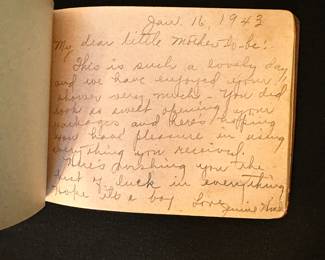 Jan. 16, 1943
My dear little Mother to-be:
This is such a lovely day
and we have enjoyed your
shower very much. You did
look so sweet opening your
packages and here's hoping
you have pleasure in using
everything you received.
Here's wishing you the
best of luck in everything.
Hope it's a boy. Love,